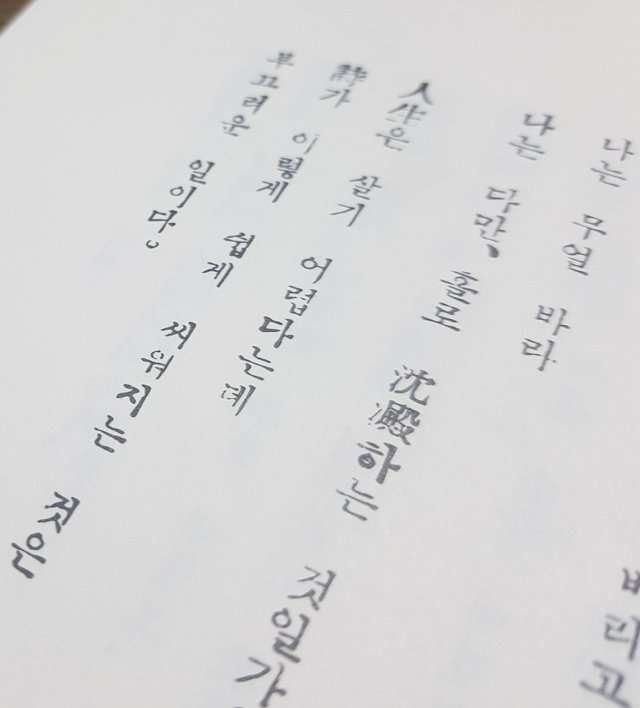 리고
나는 무얼 바라
나는 다만, 홀로 沈澱하는 것일가
人生은 살기 어렵다는데
詩가 이렇게 쉽게 씨워지는 것은
부끄러운 일이다。